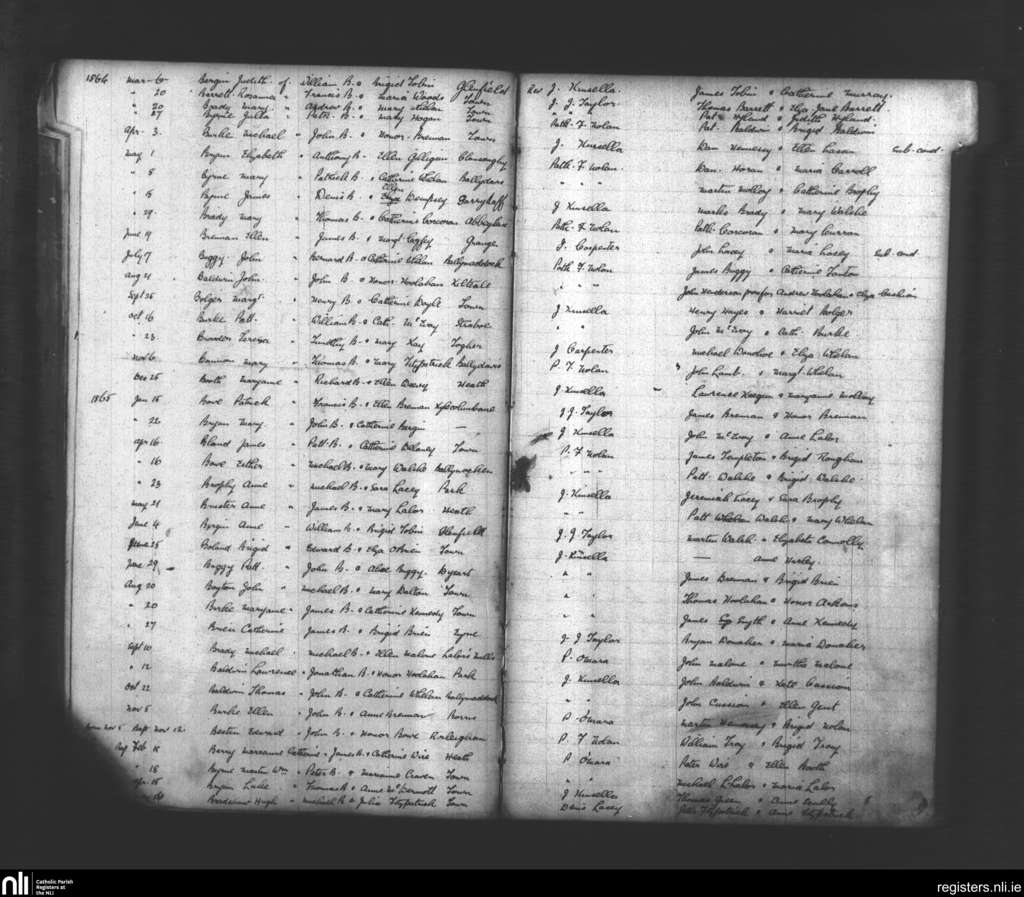 1864 Mar 6 Bergin Judith of William B. & Brigid Tobin Glenfield Rev J. Kinsella James Tobin & Catherine Murray
" 20 Barrett Rosanna " Francis B. & Maria Woods Town J. J. Taylor Thomas Barrett & Eliza Jane Barrett
" 20 Brady Mary " Andrew B. & Mary Town " " Pat Hyland & Judith Hyland
" 27 Byrne Julia " Patk. B. & Mary Hogan Town Patk. F. Nolan Pat. Baldwin & Brigid Baldwin
Apr. 3. Burke Michael " John B. & Honor Brennan Town J. Kinsella Dan Hennesy & Ellen Sub. cond.
May 1 Bryan Elizabeth " Anthony B. Ellen Gilligan Patk. F. Nolan Dan. Horan & Maria Carroll
" 8 Byrne Mary " Patrick B. & Catherine Whelan Ballydavis " " " Martin Molloy & Catherine Brophy
" 8 Byrne James " Denis B. & Ellen Dempsey J. Kinsella Marks Brady & Mary Walshe
" 29. Brady Mary " Thomas B. & Catherine Corcoran Abbeyleix Patk. F. Nolan Patk. Corcoran & Mary Curran
June 19 Brennan Ellen " James B. & Margt. Caffey Grange J. Carpenter John Lacey & Maria Lacey Sub. cond
July 7 Buggy John " Bernard B. & Catherine Whelan Ballymaddock Patk. F. Nolan James Buggy & Catherine
Aug 21 Baldwin John " John B. & Honor Hoolahan Kilteale " " John Henderson pro for Andrew Hoolahan & Eliza
Sept 25 Bolger Margt. " Henry B. & Catherine Doyle Town J. Kinsella Henry Hayes & Harriet Bolger
Oct 16 Burke Patt. " William B. & Cath. McEvoy Straboe " " John McEvoy & Cath. Burke
" 23 Teresa " Timothy B. & Mary Kay Togher J. Carpenter Michael Donohoe & Eliza Whelan
Nov 6 Bannon Mary " Thomas B. & Mary Fitzpatrick Ballydavis P. F. Nolan John Lamb & Margt. Whelan
Dec 25 Booth Maryanne " Richard B. & Ellen Heath J. Kinsella Lawrence Keegan & Maryanne Molloy
1865 Jan 15 Bowe Patrick " Francis B. & Ellen Brennan J. J. Taylor James Brennan & Honor Brennan
" 22 Bryan Mary " John B. & Catherine Bergin — J. Kinsella John McEvoy & Anne Lalor
Apr 16 Bland James " Patt B. & Catherine Delaney Town P. F. Nolan James Templeton & Brigid
" 16 Bowe Esther " Michael B. & Mary Walshe " " " Patt Walshe & Brigid Walshe
" 23 Brophy Anne " Michael B. & Sara Lacey Park J. Kinsella Jeremiah Lacey & Sara Brophy
May 21 Brewster Anne " James B. & Mary Lalor Heath " " Patt Walsh & Mary Whelan
June 4 Bergin Anne " William B. & Brigid Tobin Glenfield J. J. Taylor Martin Walsh & Elizabeth Connolly
June 25 Boland Brigid " Edward B. & Eliza O'Brien Town J. Kinsella — Anne Hurley
June 29 Buggy Patt. " John B. & Alice Buggy Kyeart " " James Brennan & Brigid Brien
Aug 20 Boyton John " Michael B. & Mary Dalton Town " " Thomas Hoolahan & Honor
" 20 Burke Maryanne " James B. & Catherine Kennedy Town " " James Smyth & Anne Kennedy
" 27 Brien Catherine " James B. & Brigid Brien J. J. Taylor Bryan Donaher & Maria Donaher
Sept 10 Brady Michael " Michael B. & Ellen Malone Lalor's Mills P. O'Mara John Malone & Martha Malone
" 12 Baldwin Lawrence " Jonathan B. & Honor Hoolahan Park J. Kinsella John Baldwin & Kate
Oct 22 Baldwin Thomas " John B. & Catherine Whelan Ballymaddock " " John & Ellen Gent
Nov 5 Burke Ellen " John B. & Anne Brennan Borris P. O'Mara Martin Hennessy & Brigid Nolan
Born Nov 5 Bapt Nov 12. Edward " John B. & Honor Bowe P. F. Nolan William Troy & Brigid Troy
Feb 18 Berry Marianne Catherine " James B. & Catherine Wire Heath P. O'Mara Peter Wire & Ellen Booth
" 18 Byrne Martin Wm. " Peter B. & Marianne Town " " Michael & Maria Lalor
Apr 15 Bryan " Thomas B. & Anne McDermott Town J. Kinsella Thomas Green & Anne
Bradshaw Hugh " Michael B. & Julia Fitzpatrick Town Denis Lacey Fitzpatrick & Anne Fitzpatrick
nli Catholic Parish Registers at the NLI
registers.nli.ie